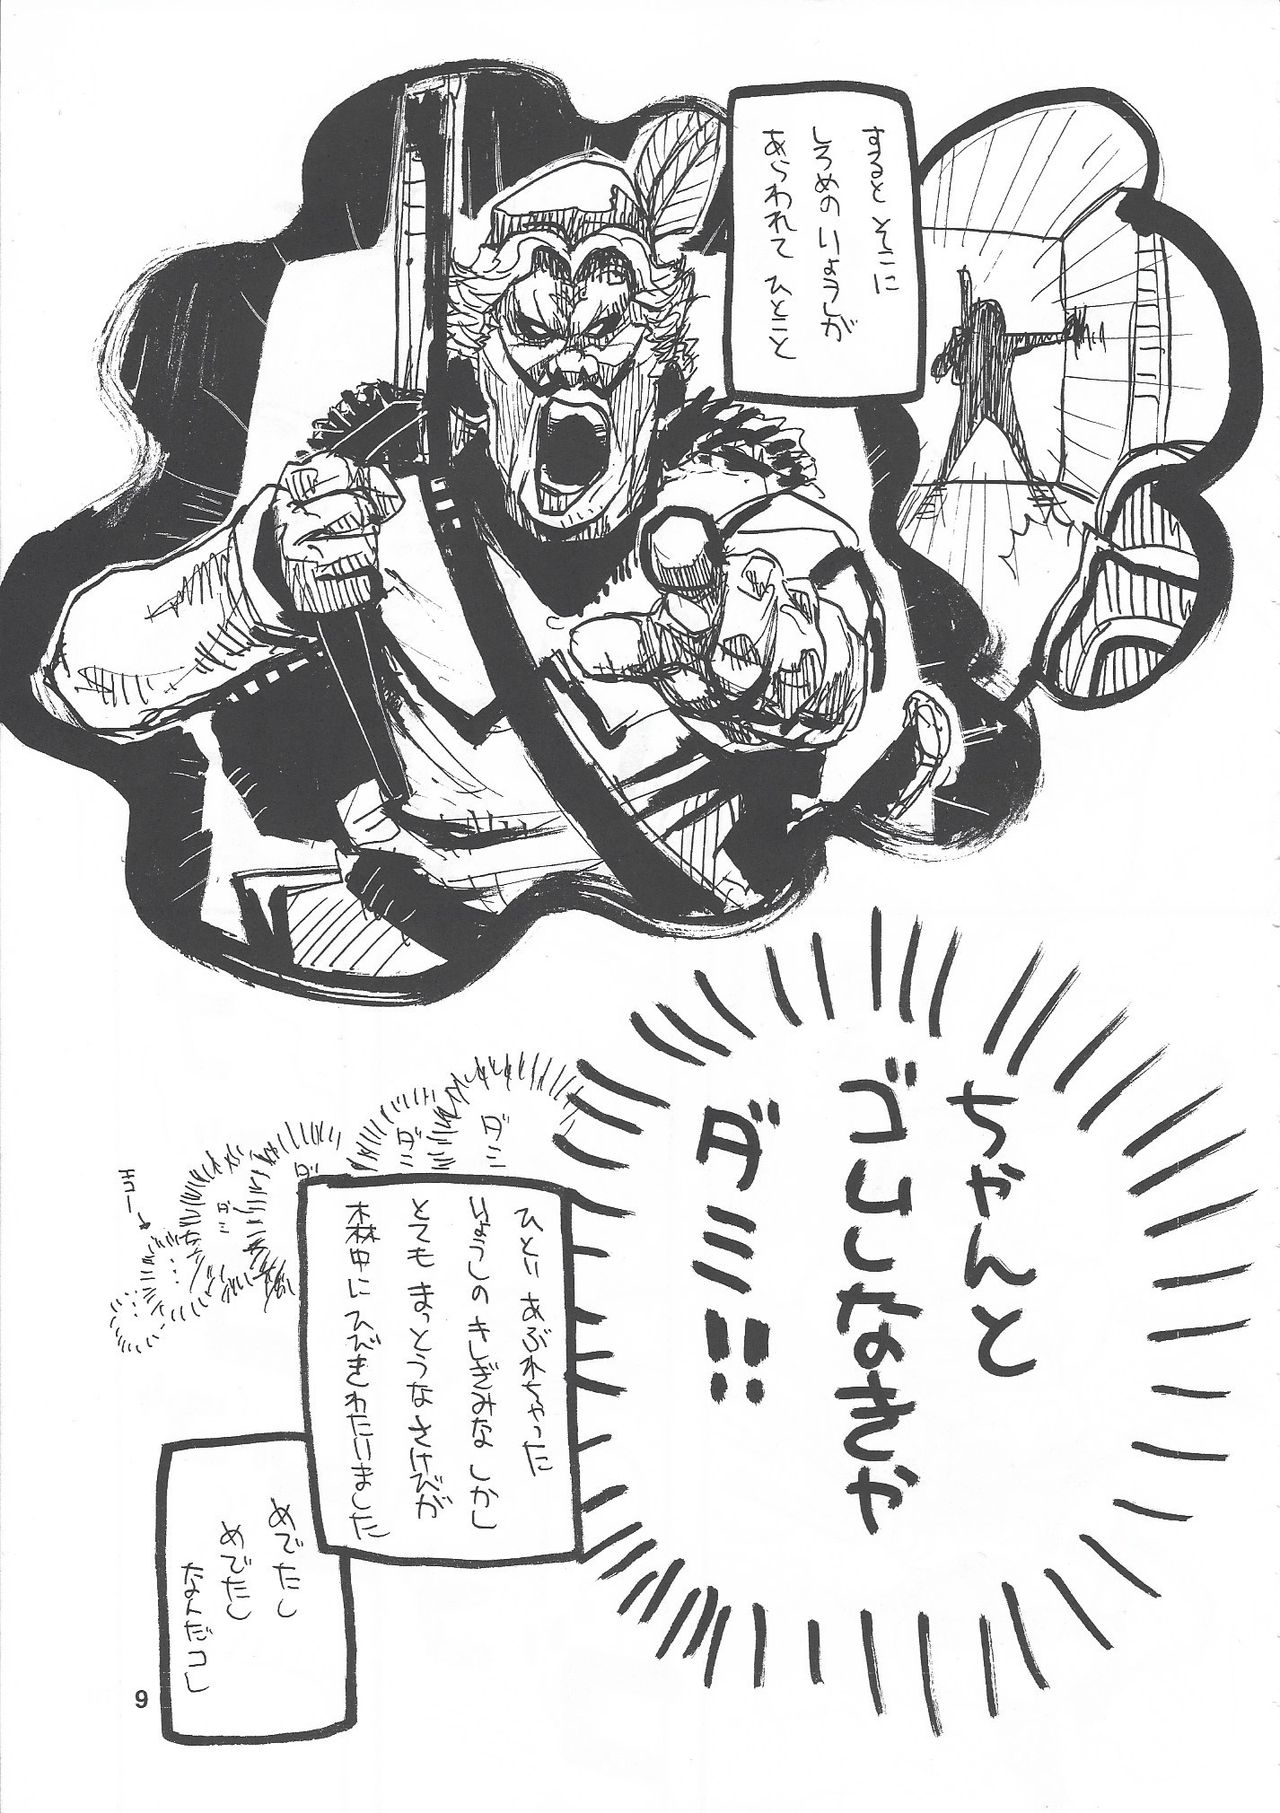 すると そこに
しろめの りょうしが
あらわれて ひとこと
ちゃんと
ゴムしなきゃ
ダミ!!
ダミ
ダミ
ダ
ダミ
エコー→
ひとり あぶれちゃった
りょうしの きしぎみな しかし
とても まっとうな さけびが
森中に ひびきわたりました
めでたし
めでたし
なんだコレ
9